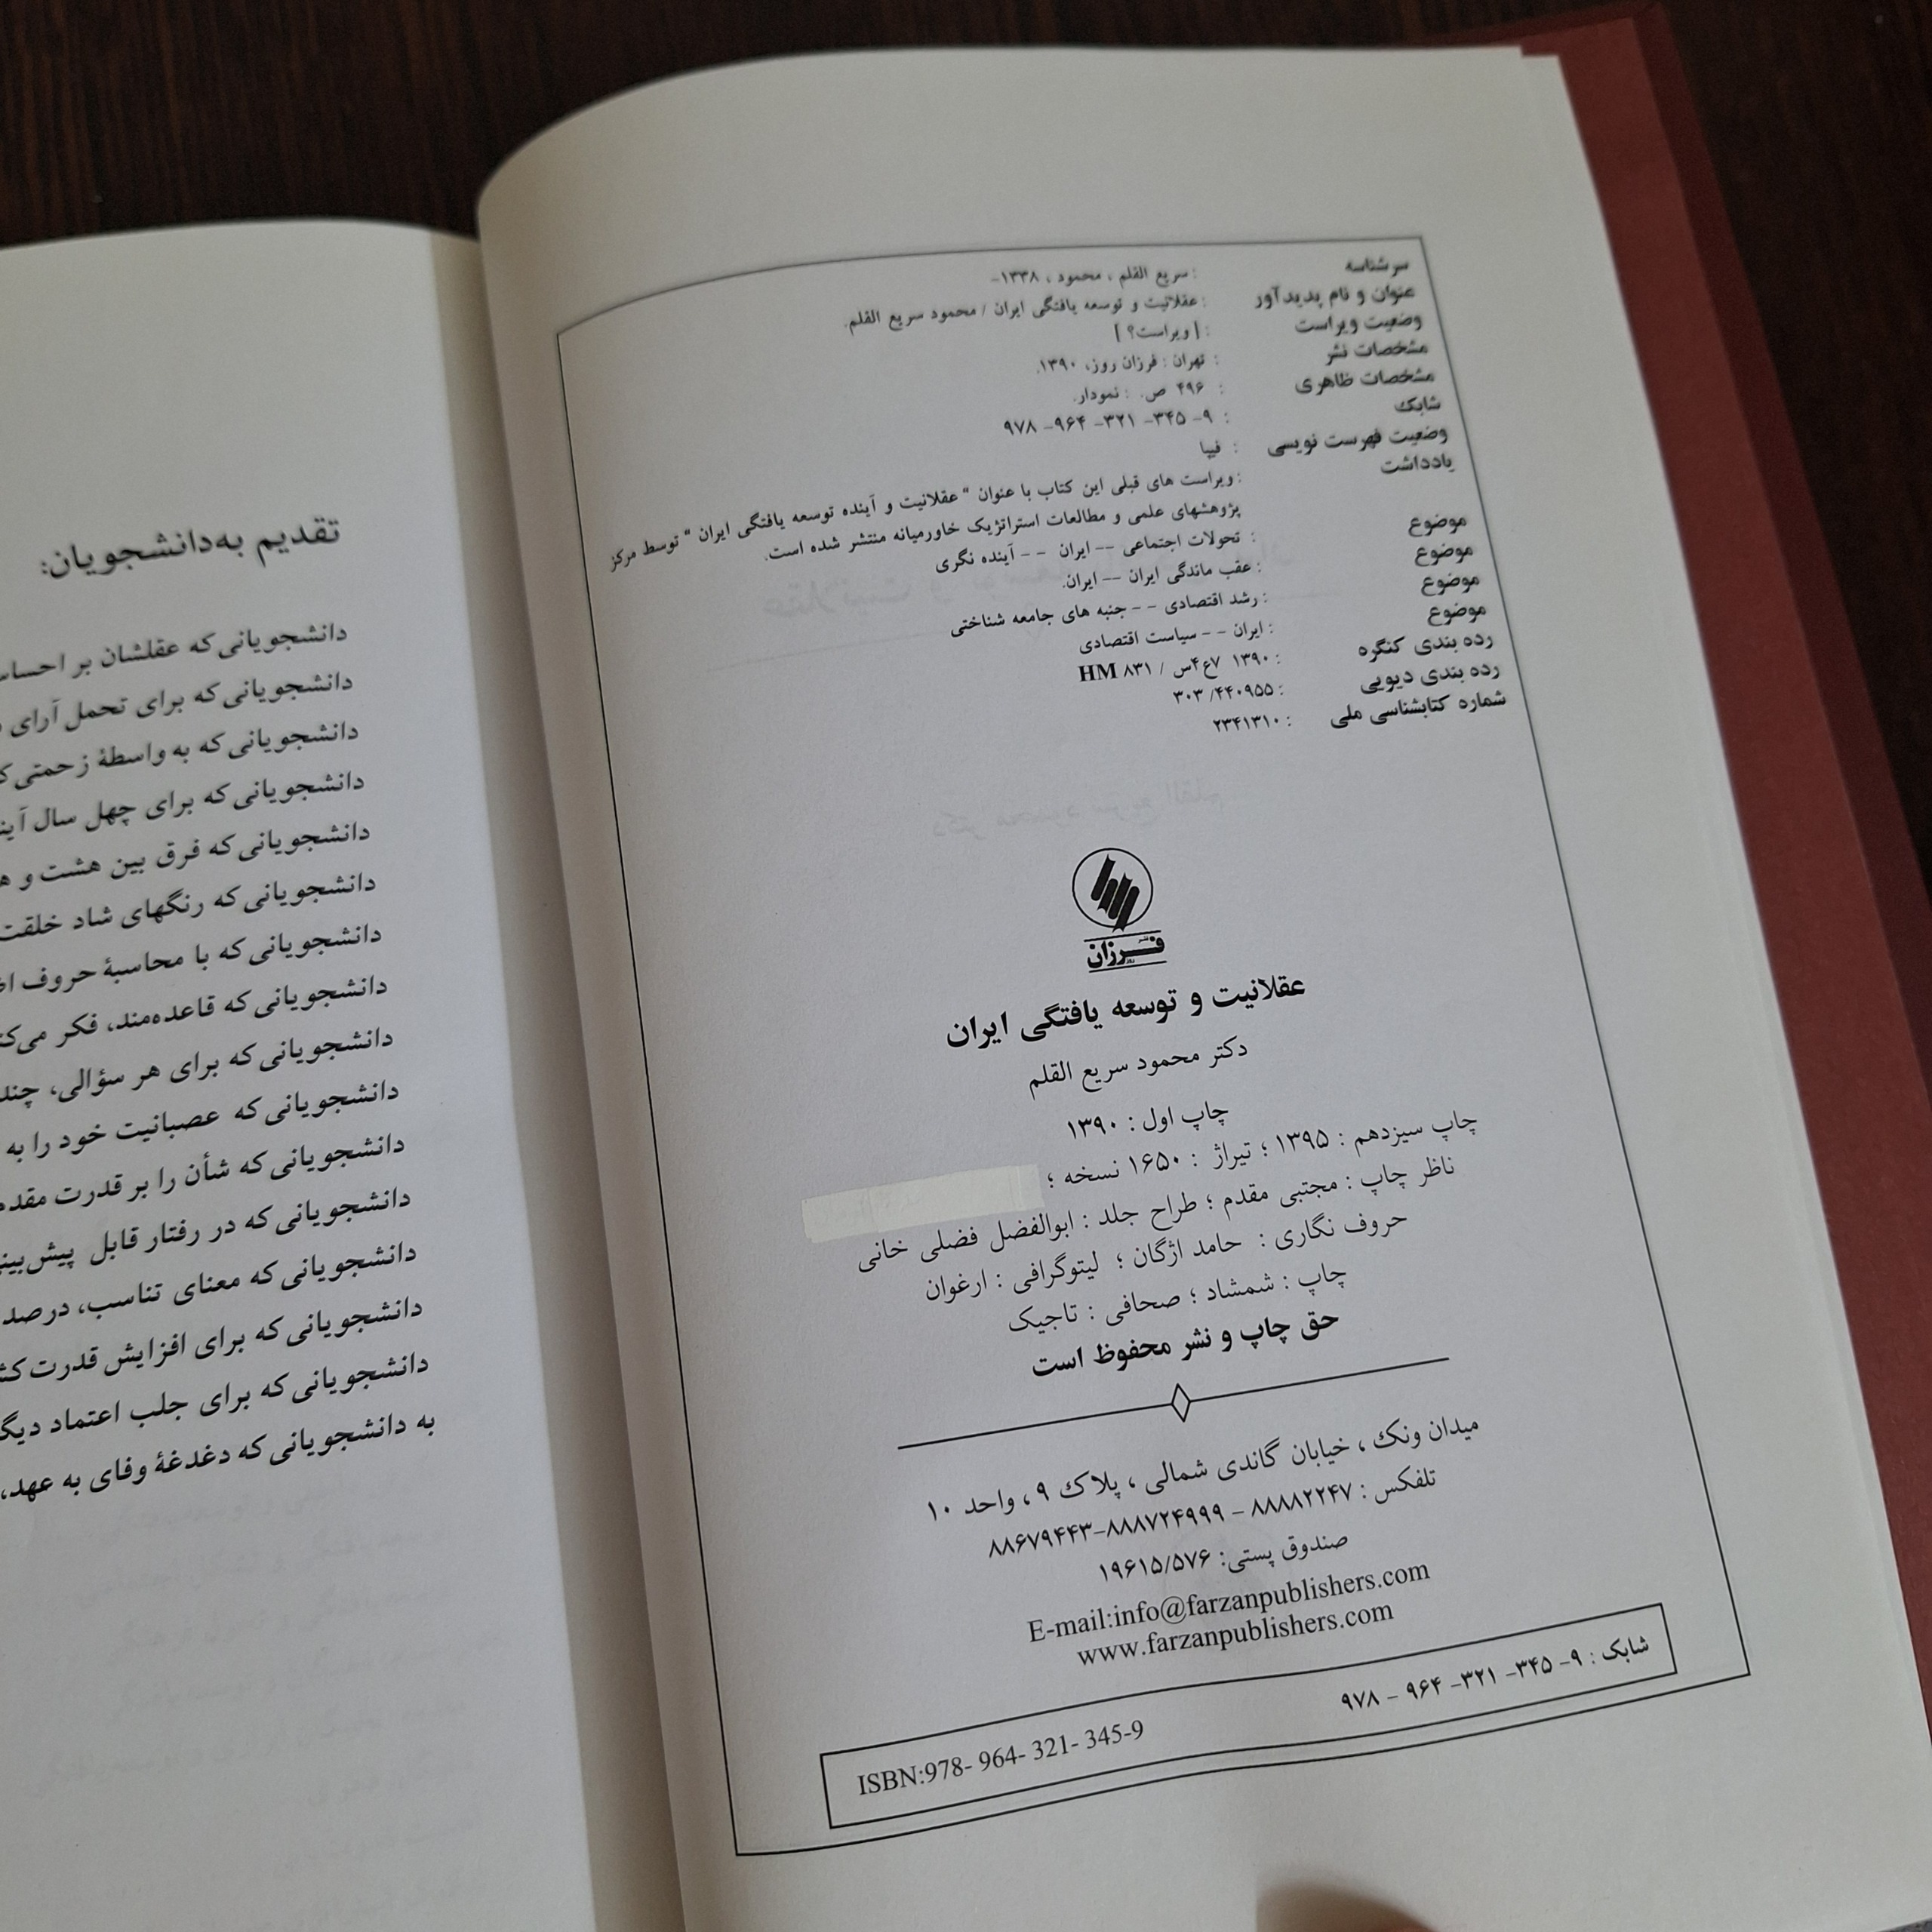 سرشناسه : سریع القلم ، محمود ، ۱۳۳۸-
عنوان و نام پدیدآور : عقلانیت و توسعه یافتگی ایران / محمود سریع القلم.
وضعیت ویراست : [ ویراست؟ ]
مشخصات نشر : تهران : فرزان روز، ۱۳۹۰.
مشخصات ظاهری : ۴۹۶ ص. : نمودار.
شابک : ۹- ۳۴۵- ۳۲۱- ۹۶۴- ۹۷۸
وضعیت فهرست نویسی : فیپا
یادداشت : ویراست های قبلی این کتاب با عنوان " عقلانیت و آینده توسعه یافتگی ایران " توسط مرکز
پژوهشهای علمی و مطالعات استراتژیک خاورمیانه منتشر شده است.
موضوع : تحولات اجتماعی -- ایران -- آینده نگری
موضوع : عقب ماندگی ایران -- ایران.
موضوع : رشد اقتصادی -- جنبه های جامعه شناختی
موضوع : ایران -- سیاست اقتصادی
رده بندی کنگره : ۱۳۹۰ ۷ع۴س / HM ۸۳۱
رده بندی دیویی : ۳۰۳/۴۴۰۹۵۵
شماره کتابشناسی ملی : ۲۳۴۱۳۱۰
نشر فرزان روز
عقلانیت و توسعه یافتگی ایران
دکتر محمود سریع القلم
چاپ اول : ۱۳۹۰
چاپ سیزدهم : ۱۳۹۵ ؛ تیراژ : ۱۶۵۰ نسخه ؛
ناظر چاپ : مجتبی مقدم ؛ طراح جلد : ابوالفضل فضلی خانی
حروف نگاری : حامد اژگان ؛ لیتوگرافی : ارغوان
چاپ : شمشاد ؛ صحافی : تاجیک
حق چاپ و نشر محفوظ است
میدان ونک ، خیابان گاندی شمالی ، پلاک ۹ ، واحد ۱۰
تلفکس : ۸۸۸۸۲۲۴۷ - ۸۸۸۷۲۴۹۹۹-۸۸۶۷۹۴۴۳
صندوق پستی: ۱۹۶۱۵/۵۷۶
E-mail:info@farzanpublishers.com
www.farzanpublishers.com
شابک : ۹- ۳۴۵- ۳۲۱- ۹۶۴ - ۹۷۸
ISBN:978- 964- 321- 345-9
تقدیم به‌دانشجویان:
دانشجویانی‌که عقلشان بر
دانشجویانی‌که برای تحمل آرای
دانشجویانی‌که به واسطهٔ زحمتی
دانشجویانی‌که برای چهل سال
دانشجویانی‌که فرق بین هشت و
دانشجویانی‌که رنگهای شاد خلقت
دانشجویانی‌که با محاسبهٔ حروف
دانشجویانی‌که قاعده‌مند، فکر
دانشجویانی‌که برای هر سؤالی،
دانشجویانی‌که عصبانیت خود را به
دانشجویانی‌که شأن را بر قدرت
دانشجویانی‌که در رفتار قابل
دانشجویانی‌که معنای تناسب،
دانشجویانی‌که برای افزایش قدرت
دانشجویانی‌که برای جلب اعتماد
به دانشجویانی‌که دغدغهٔ وفای به عهد،